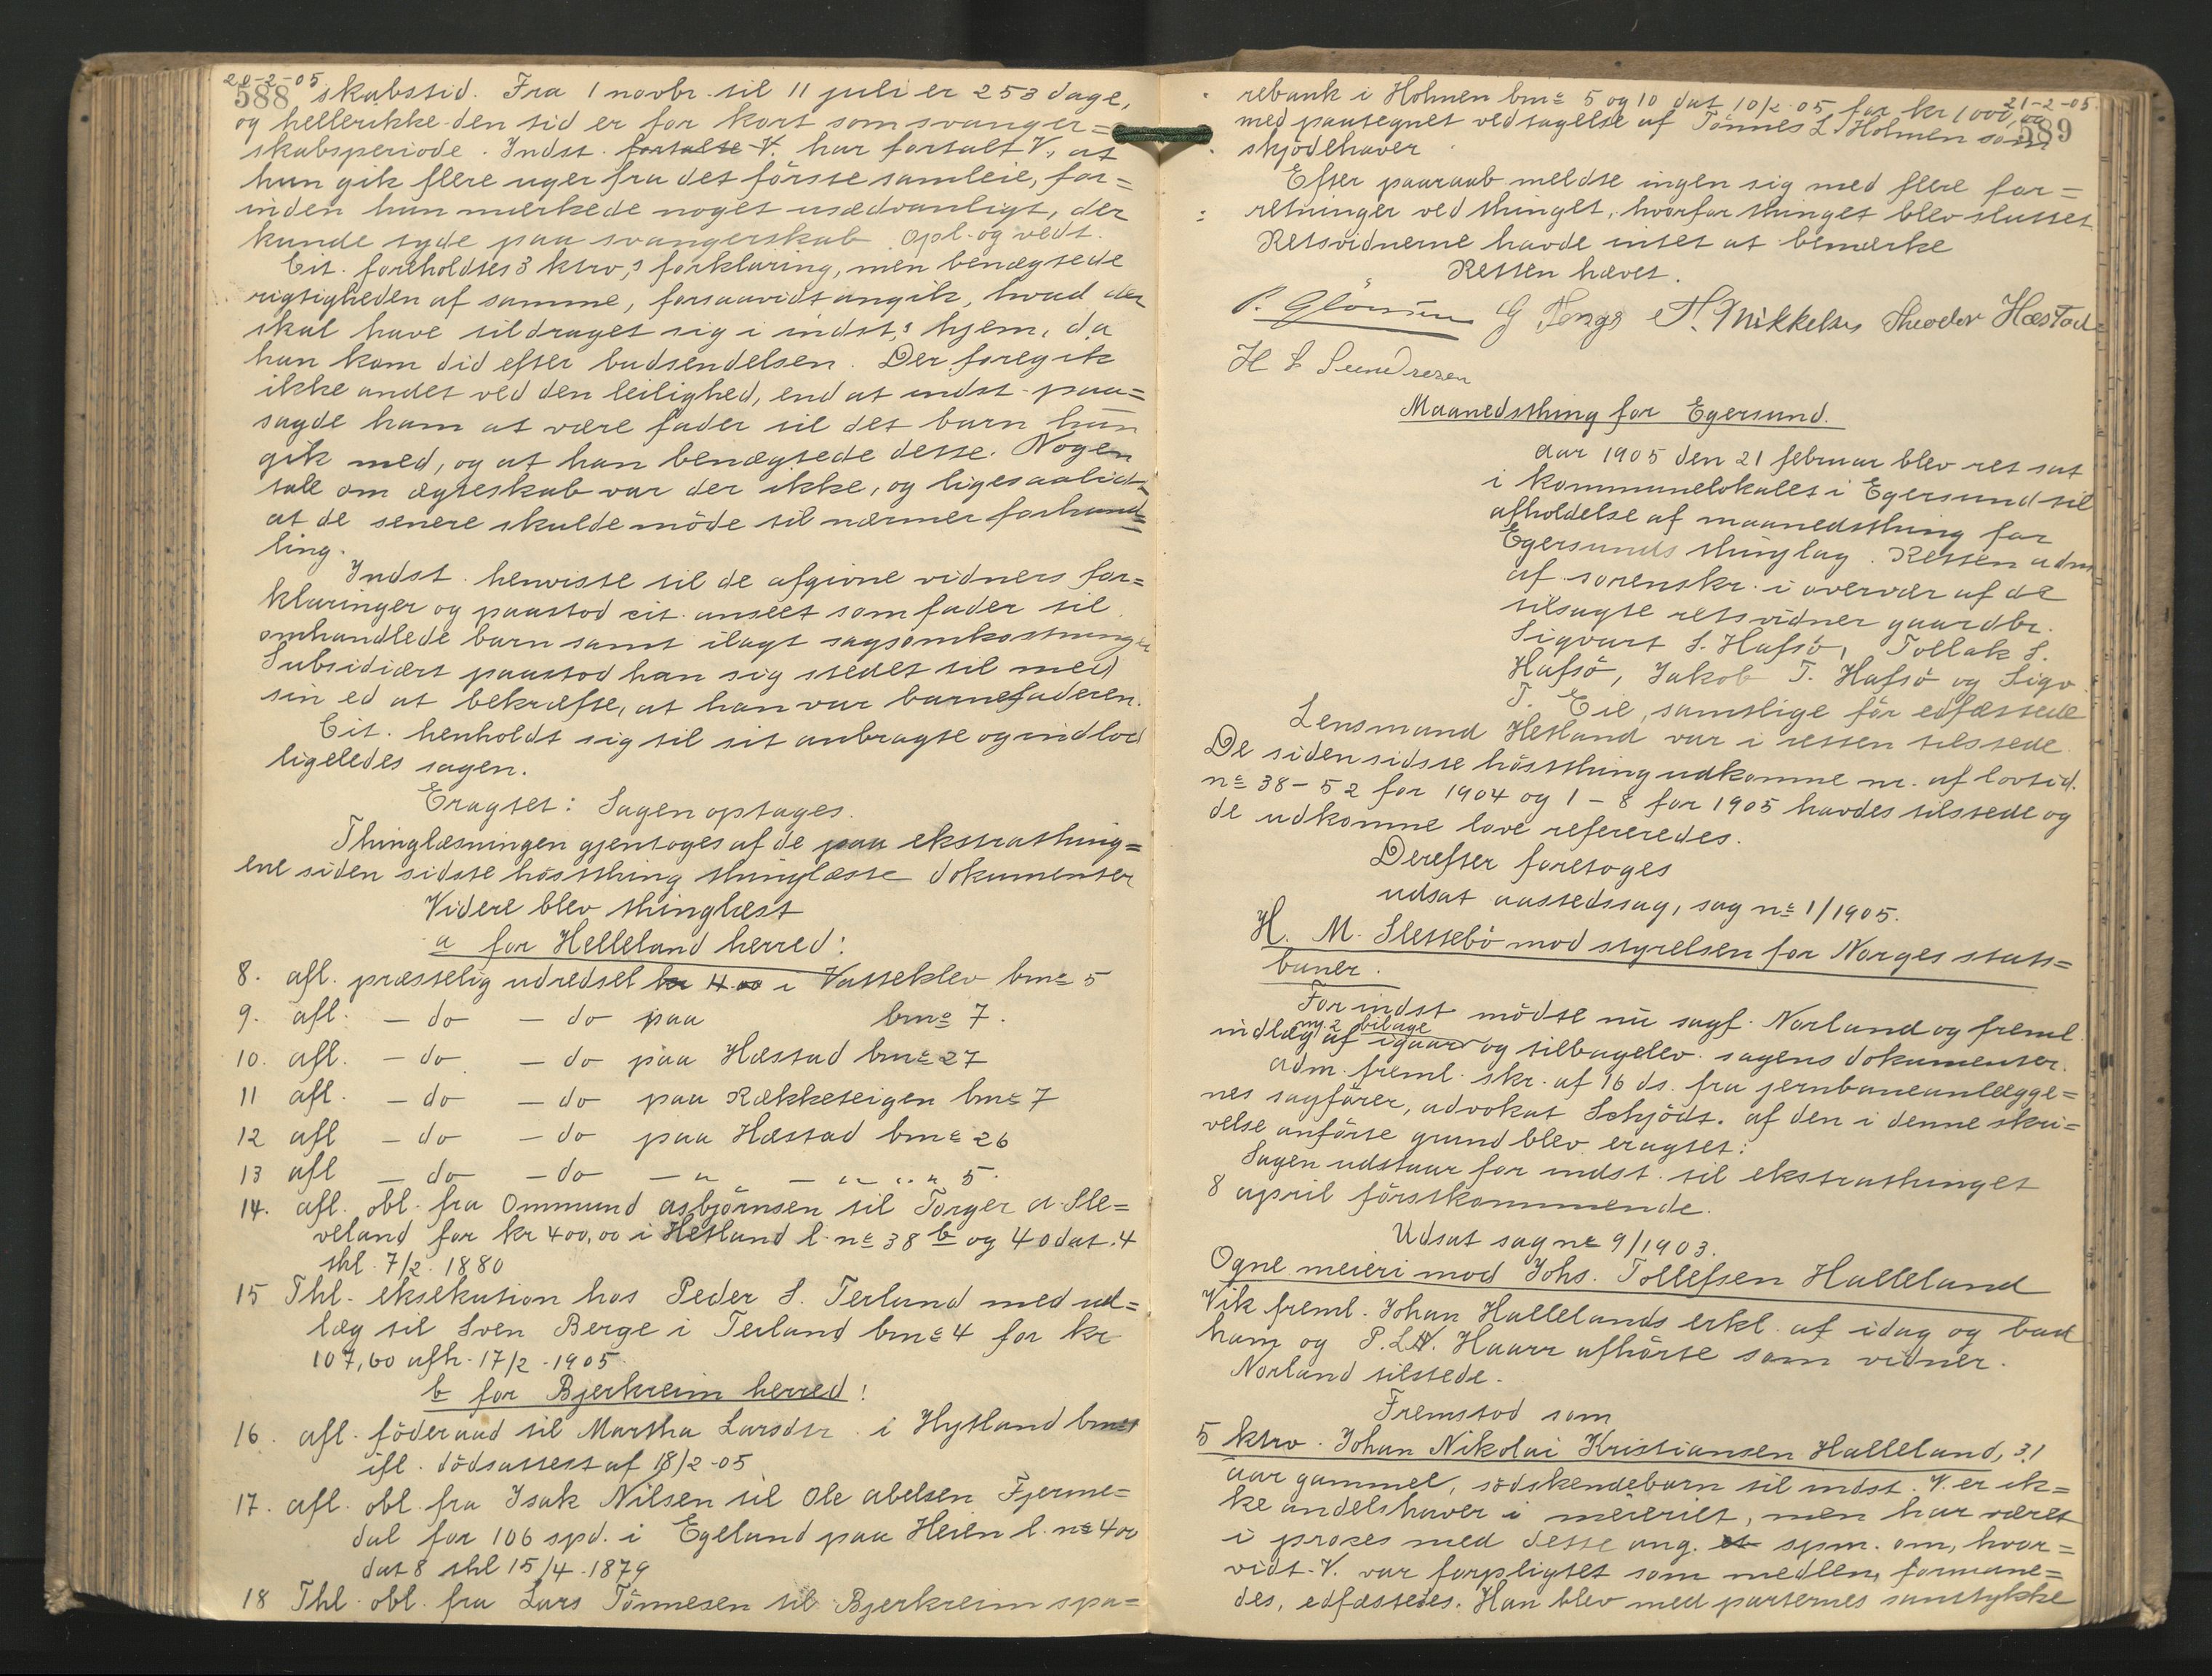 20-2-05
588
skabstid. Fra 1 novbr. til 11 juli er 253 dage,
og hellerikke den tid er for kort som svanger=
skabsperiode. Indst. fortalte V. har fortalt V., at
hun gik flere uger fra det förste samleie, for=
inden hun mærkede noget usædvanligt, der
kunde tyde paa svangerskab. Opl. og vedt.
Cit. foreholdtes 3 ktrv,s forklaring, men benægtede
rigtigheden af samme, forsaavidt angik, hvad der
skal have tildraget sig i indst,s hjem, da
han kom did efter budsendelsen. Der foregik
ikke andet ved den leilighed, end at indst. paa=
sagde ham at være fader til det barn hun
gik med, og at han benægtede dette. Nogen
tale om ægteskab var der ikke, og ligesaalidt
at de senere skulde möde til nærmer forhand=
ling.
Indst. henviste til de afgivne vidners for=
klaringer og paastod cit. anseet som fader til
omhandlede barn samt ilagt sagsomkostninger
Subsidiært paastod han sig stedet til med
sin ed at bekræfte, at han var barnefaderen.
Cit. henholdt sig til sit anbragte og indlod
ligeledes sagen.
Eragtet: Sagen optages.
Thinglæsningen gjentoges af de paa ekstrathing=
ene siden sidste höstthing thinglæste dokumenter
Videre blev thinglæst
a for Helleland herred:
8. afl. præstelig udredsel kr 4.00 i Vasseklev bnr 5
9. afl. - do - do paa bnr 7.
10. afl. - do - do paa Hæstad bnr 27
11 afl. - do - do paa Rækketeigen bnr 7
12 afl - do - do paa Hæstad bnr 26
13 afl - do - do - " - " " " 5.
14. afl. obl. fra Ommund Asbjörnsen til Torger A. Sle=
veland for kr 400,00 i Hetland l. nr 38 b og 40 dat. 4
thl. 7/2. 1880
15 Thl. eksekution hos Peder S. Terland med ud=
læg til Sven Berge i Terland bnr 4 for kr
107,60 afh. 17/2. 1905
b for Bjerkreim herred:
16. afl. föderaad til Martha Larsdtr. i Hytland bnr 1
ifl. dödsattest af 18/2-05
17. afl. obl. fra Isak Nilsen til Ole Abelsen Fjerme=
dal for 106 spd. i Egeland paa Heien l. nr 400
dat 8 thl 15/4. 1879
18 Thl. obl. fra Lars Tönnesen til Bjerkreim spa=
21-2-05
589
rebank i Holmen bnr 5 og 10 dat 10/2. 05 for kr 1000,00
med paategnet vedtagelse af Tönnes L. Holmen som
skjödehaver
Efter paaraab meldte ingen sig med flere for=
retninger ved thinget, hvorfor thinget blev sluttet
Retsvidnerne havde intet at bemærke
Retten hævet.
G Tengs A. Mikkelsen Theodor Hæstad
H S Seeudresen
Maanedsthing for Egersund.
Aar 1905 den 21 februar blev ret sat
i kommunelokalet i Egersund til
afholdelse af maanedsthing for
Egersunds thinglag. Retten adm=
af sorenskr. i overvær af de
tilsagte retsvidner gaardbr.
Sigvart S. Hafsö, Tollak S.
Hafsö, Jakob T. Hafsö og Sigv.
T. Eie, samtlige för edfæstede
Lensmand Hetland var i retten tilstede.
De siden sidste höstthing udkomne nr. af lovtid.
nr 38-52 for 1904 og 1-8 for 1905 havdes tilstede og
de udkomne love refereredes.
Derefter foretoges
udsat aastedssag, sag nr 1/1905.
H. M. Slettebö mod styrelsen for Norges stats=
baner.
For indst mödte nu sagf. Norland og freml.
mg. 2 bilage
indlæg af igaar og tilbagelev. sagens dokumenter.
Adm. freml. skr. af 16 ds. fra jernbaneanlægge=
nes sagförer, advokat Schjödt. Af den i denne skri=
velse anförte grund blev eragtet:
Sagen udstaar for indst. til ekstrathinget
8 april förstkommende.
Udsat sag nr 9/1903.
Ogne meieri mod Johs. Tollefsen Halleland
Vik freml. Johan Hallelands erkl. af idag og bad
ham og P. L. N. Haarr afhörte som vidner.
Norland tilstede.
Fremstod som
5 ktrv. Johan Nikolai Kristiansen Halleland, 31
aar gammel, södskendebarn til indst. V. er ik=
ke andelshaver i meieriet, men har været
i proces med dette ang. et spm. om, hvor=
vidt V. var forpligtet som medlem, formane=
des, edfæstedes. Han blev med parternes samtykke